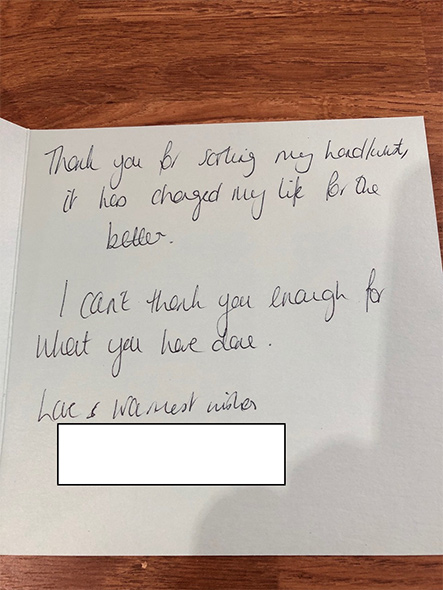 Thank you for sorting my hand/wrist,
it has changed my life for the
better.
I can't thank you enough for
what you have done.
Love & Warmest wishes